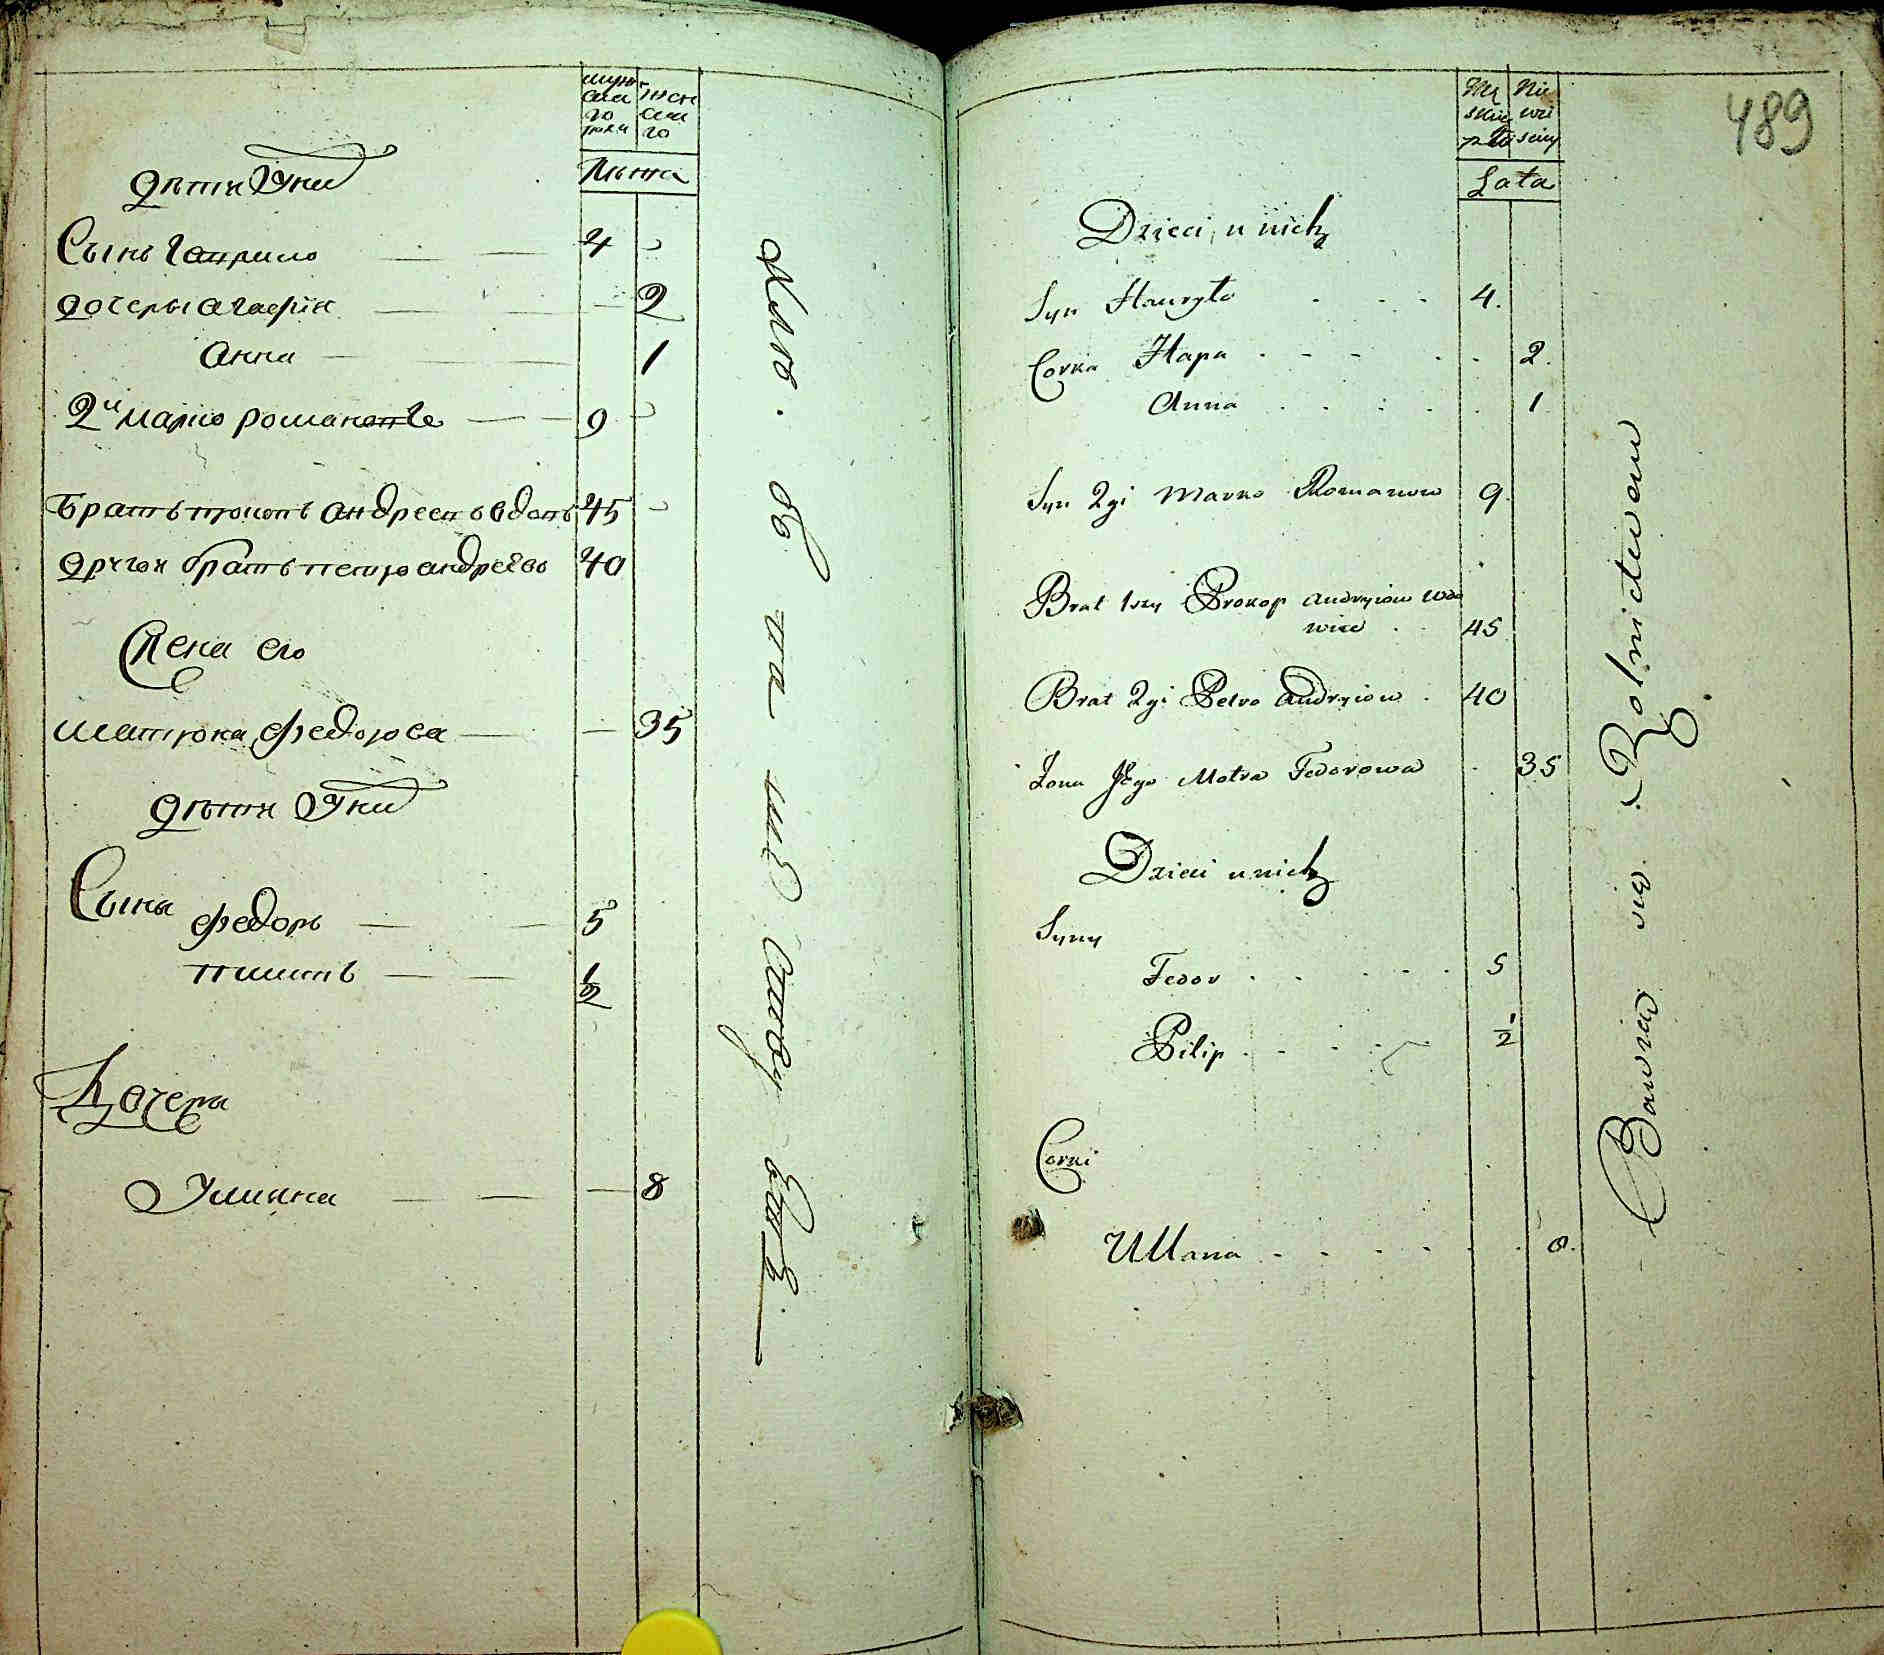 мужс
каго
полу
женс
каго
Лѣта
дѣти У ни
Сынъ Гаврило 4
дочеры Агафия 2
Анна 1
2й Марко Романовъ 9
Братъ Андреевъ вдовъ 45
другой братъ Петро Андреевъ 40
Жена его
Матрона Федорова 35
дѣти У ни
Сыны
Федоръ 5
1/2
Дочера
Улиана 8
Mę
skiey
płci
Nie
wie
sciey
489
Lata
Dzieci u nich
Syn Hauryło 4.
Corka Hapa 2.
Anna 1
Syn 2gi Marko Romanow 9
Brat 1szy Prokop Andryiow wdo
wiec 45
Brat 2gi Petro Andryiow 40
Żona Jego Motra Fedorowa 35
Dzieci u nich
Syny
Fedor 5
Pilip 1/2
Corki
Ullana 8.
Bawieą się Rolnictwem